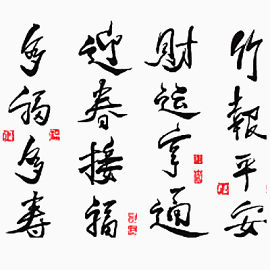 竹報平安
財运亨通
迎春接福
多福多寿